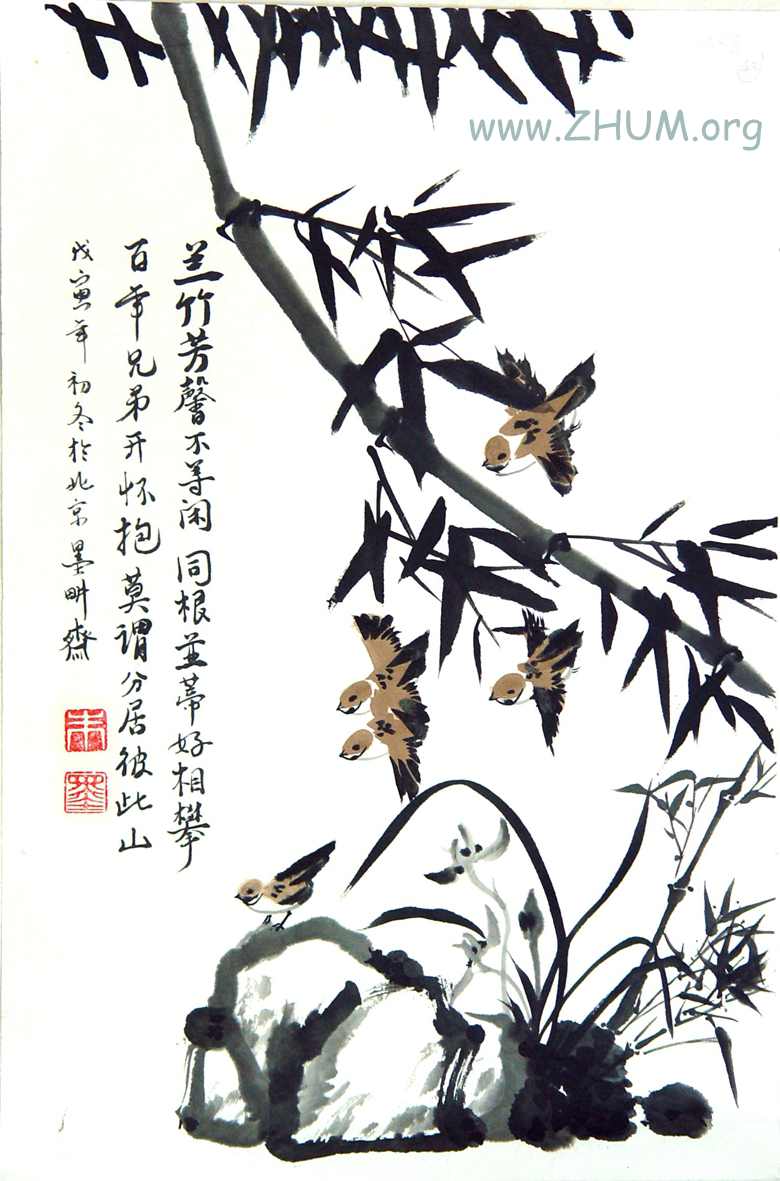 www.ZHUM.org
兰竹芳馨不等闲 同根並蒂好相攀
百年兄弟开怀抱 莫谓分居彼此山
戊寅年初冬於北京墨畊齋